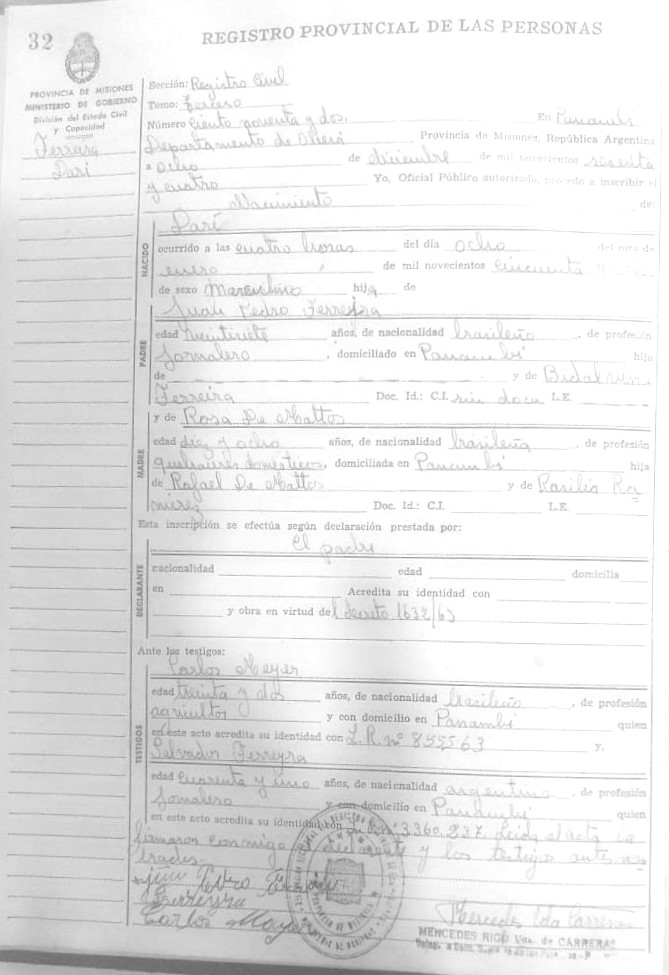 32
REGISTRO PROVINCIAL DE LAS PERSONAS
PROVINCIA DE MISIONES
MINISTERIO DE GOBIERNO
División del Estado Civil
y Capacidad
Ferreira
Darí
Sección: Registro Civil
Tomo: Tercero
Número Ciento noventa y dos. En Panambí
Departamento de Oberá Provincia de Misiones, República Argentina
a ocho de diciembre de mil novecientos sesenta
y cuatro Yo, Oficial Público autorizado, procedo a inscribir el
Nacimiento de:
NACIDO
Darí
ocurrido a las cuatro horas del día ocho del mes de
enero de mil novecientos cincuenta y
de sexo Masculino hijo de
Juan Pedro Ferreyra
PADRE
edad veintisiete años, de nacionalidad brasileño, de profesión
Jornalero, domiciliado en Panambí hijo
de y de
Ferreira Doc. Id.: C.I. sin docu L.E.
y de Rosa De Mattos
MADRE
edad diez y ocho años, de nacionalidad brasileña, de profesión
quehaceres domésticos, domiciliada en Panambí hija
de Rafael De Mattos y de Rasilia Ra
mirez Doc. Id.: C.I. L.E.
Esta inscripción se efectúa según declaración prestada por:
El padre
DECLARANTE
nacionalidad edad domicilia
en Acredita su identidad con
y obra en virtud del decreto 1632/63
Ante los testigos:
TESTIGOS
Carlos Meyer
edad treinta y dos años, de nacionalidad brasileño, de profesión
agricultor y con domicilio en Panambí quien
en este acto acredita su identidad con L.R. nº 859563 y,
Salvador Ferreyra
edad cuarenta y uno años, de nacionalidad argentino, de profesión
Jornalero y con domicilio en Panambí quien
en este acto acredita su identidad con 3.360.237. Leída el acta la
firmaron conmigo declarante y los testigos antes no
brados.
Juan Pedro
Ferreyra
Carlos Mayer
Mercedes Rigo Carreras
MERCEDES RIGO Vda. de CARRERAS